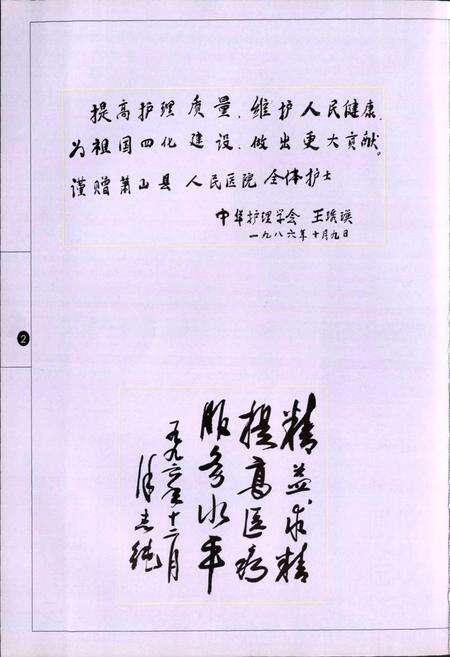 提高护理质量、维护人民健康、
为祖国四化建设、做出更大贡献。
谨赠萧山县 人民医院 全体护士
中华护理学会 王琇瑛
一九八六年十月九日
2
精益求精
提高医疗
服务水平
一九九六年十二月
志纯